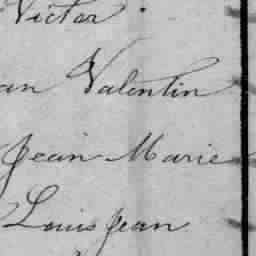 Victor
an Valentin
Jean Marie
Louis Jean